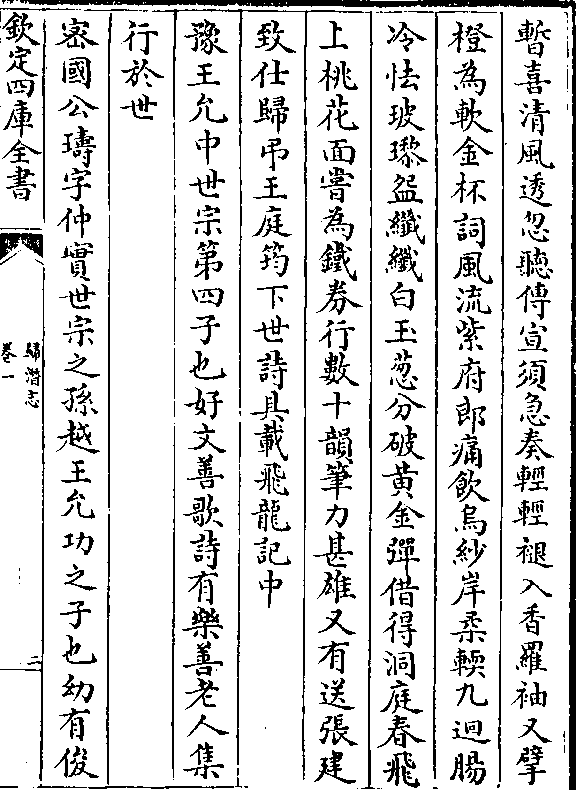 暫喜清風透忽聽傳宣須急奏輕輕褪入香羅袖又擘
橙為軟金杯詞風流紫府郎痛飲烏紗岸柔輭九迴腸
冷怯玻瓈盌纖纖白玉葱分破黄金彈借得洞庭春飛
上桃花面嘗為鐵券行數十韻筆力甚雄又有送張建
致仕歸弔王庭筠下世詩具載飛龍記中
豫王允中世宗第四子也好文善歌詩有樂善老人集
行於世
密國公璹字仲實世宗之孫越王允功之子也幼有俊
欽定四庫全書
歸潛志
卷一
三